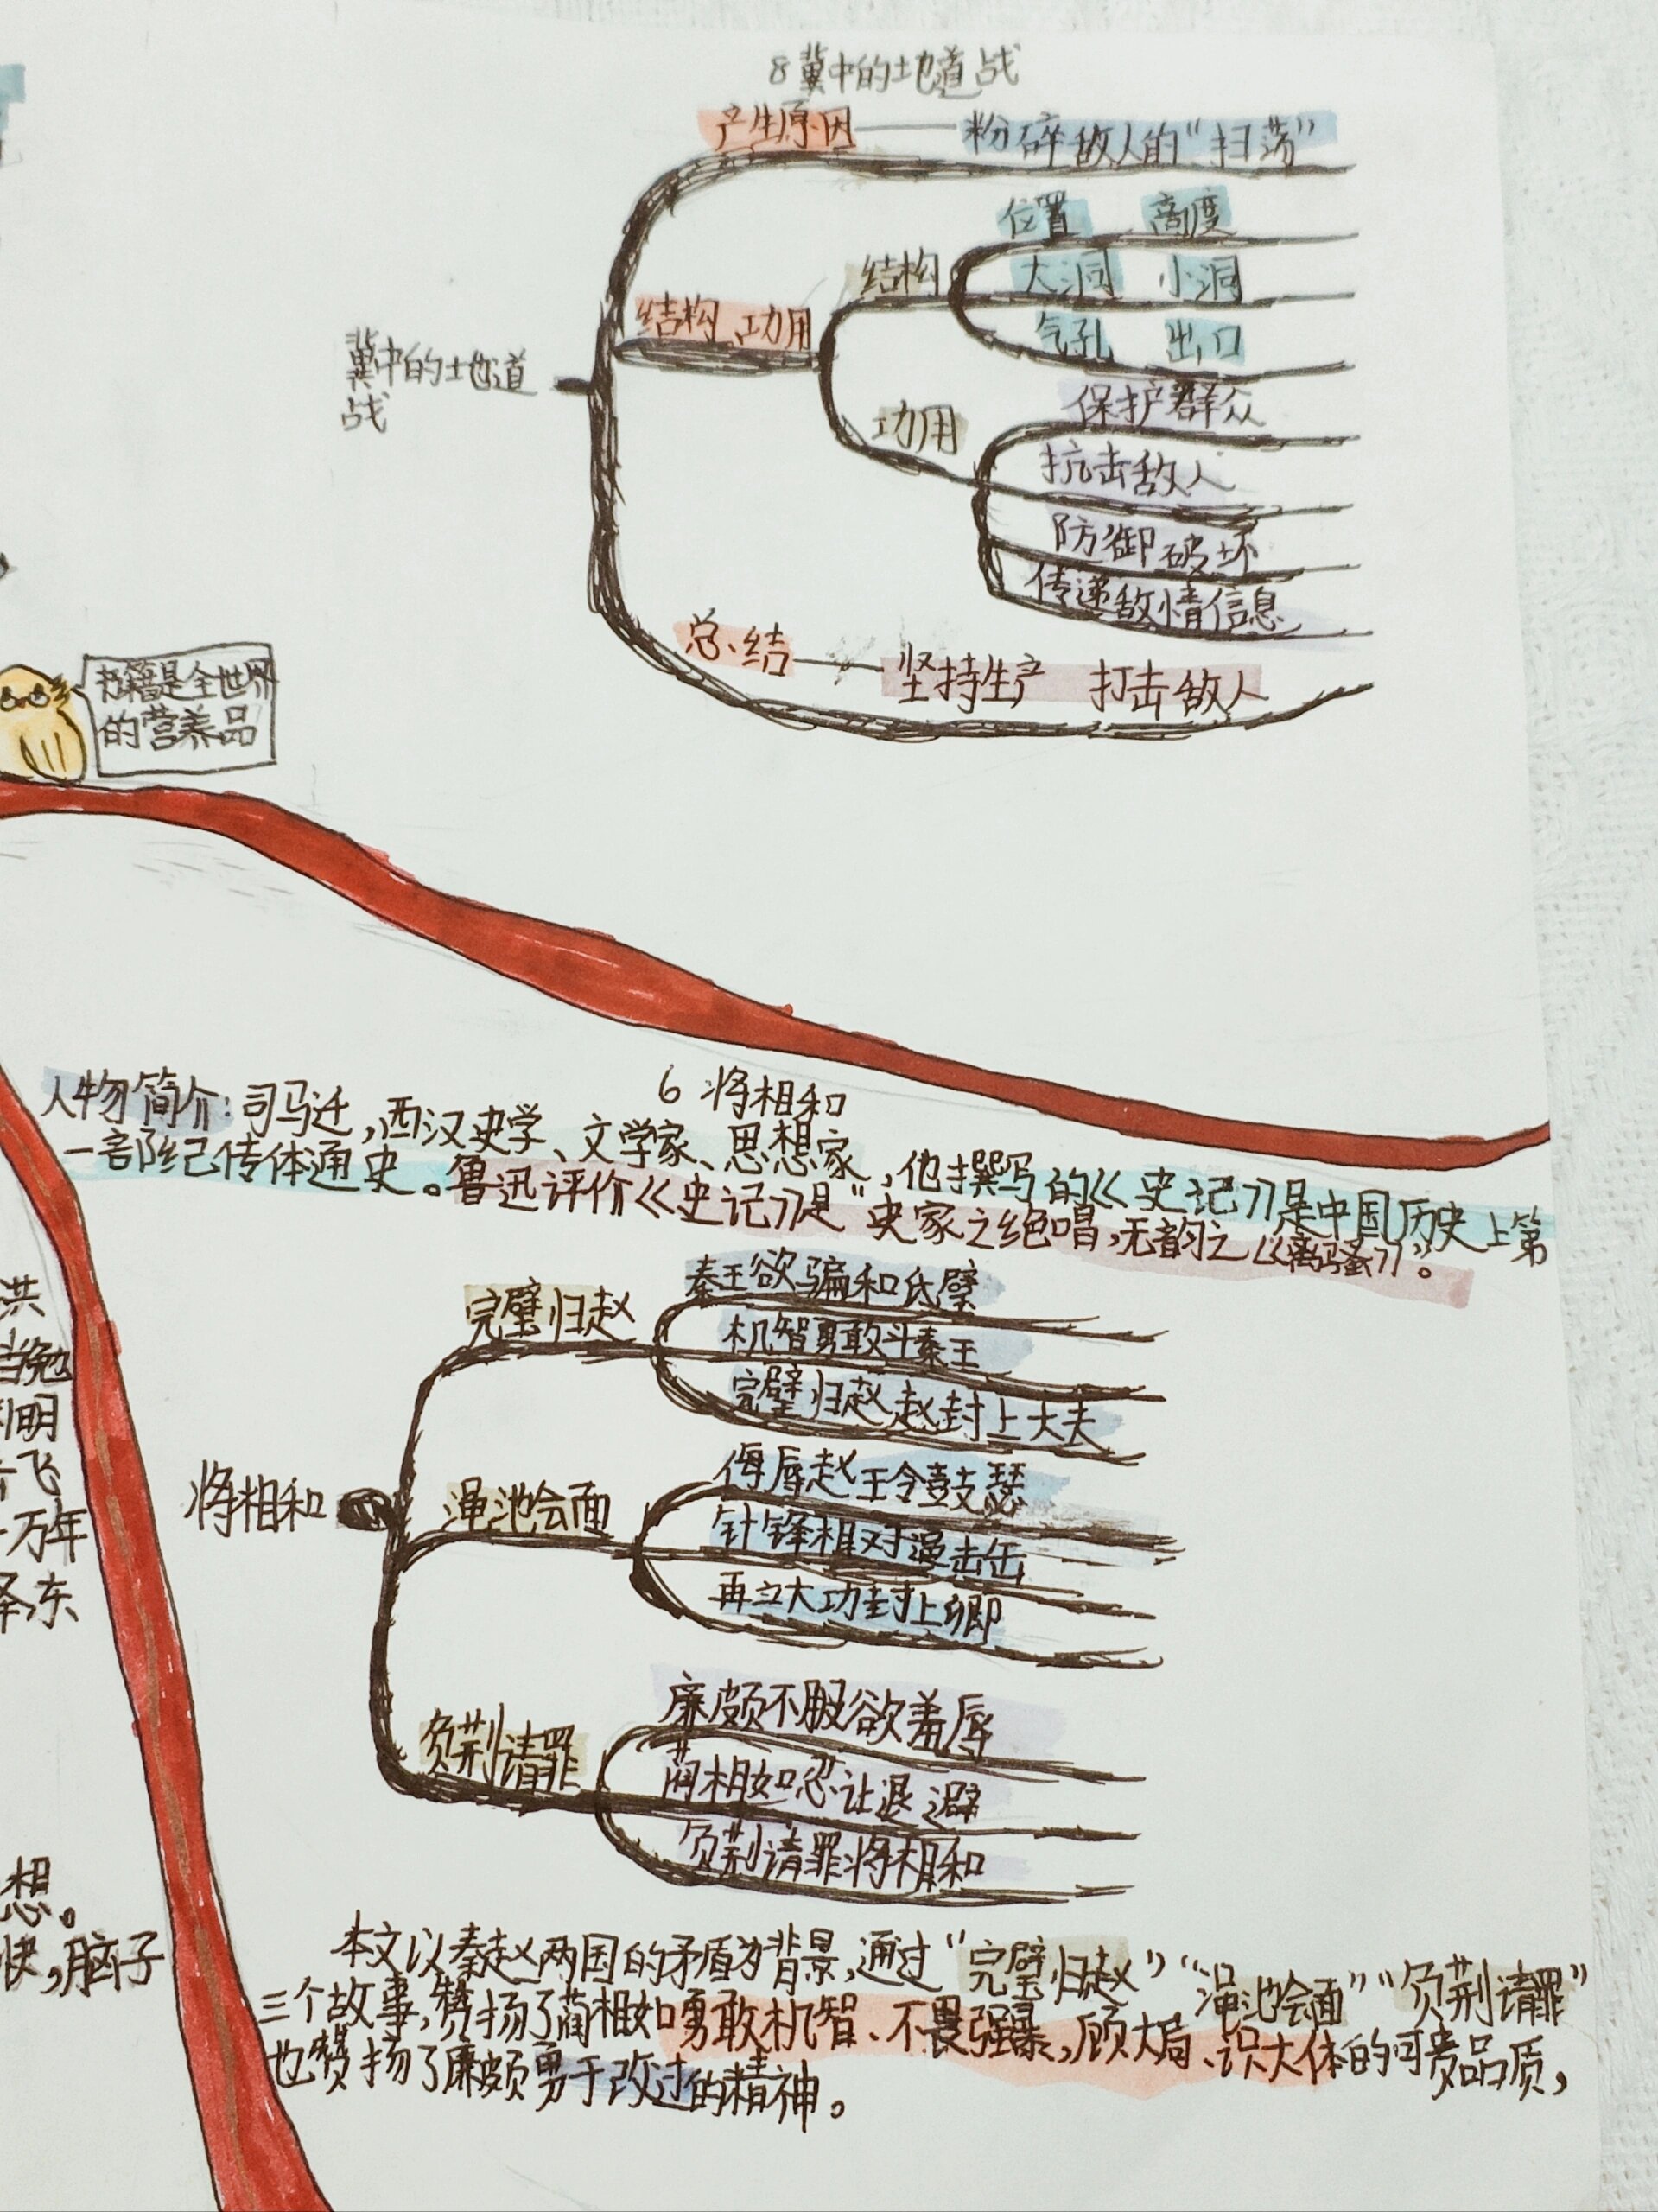 8 冀中的地道战
产生原因 粉碎敌人的“扫荡”
位置 高度
结构 大洞 小洞
结构、功用 气孔 出口
冀中的地道
战
保护群众
功用
抗击敌人
防御破坏
传递敌情信息
总结 坚持生产 打击敌人
书籍是全世界
的营养品
6 将相和
人物简介:司马迁,西汉史学、文学家、思想家,他撰写的《史记》是中国历史上第
一部纪传体通史。鲁迅评价《史记》是“史家之绝唱,无韵之《离骚》”。
秦王欲骗和氏璧
完璧归赵
机智勇敢斗秦王
完璧归赵 赵封上大夫
侮辱赵王令鼓瑟
将相和 渑池会面
针锋相对逼击缶
再立大功封上卿
廉颇不服欲羞辱
负荆请罪
蔺相如忍让退避
负荆请罪将相和
本文以秦赵两国的矛盾为背景,通过“完璧归赵”“渑池会面”“负荆请罪”
三个故事,赞扬了蔺相如勇敢机智、不畏强暴,顾大局、识大体的可贵品质,
也赞扬了廉颇勇于改过的精神。
洪
勉
明
飞
万年
泽东
想。
快,脑子